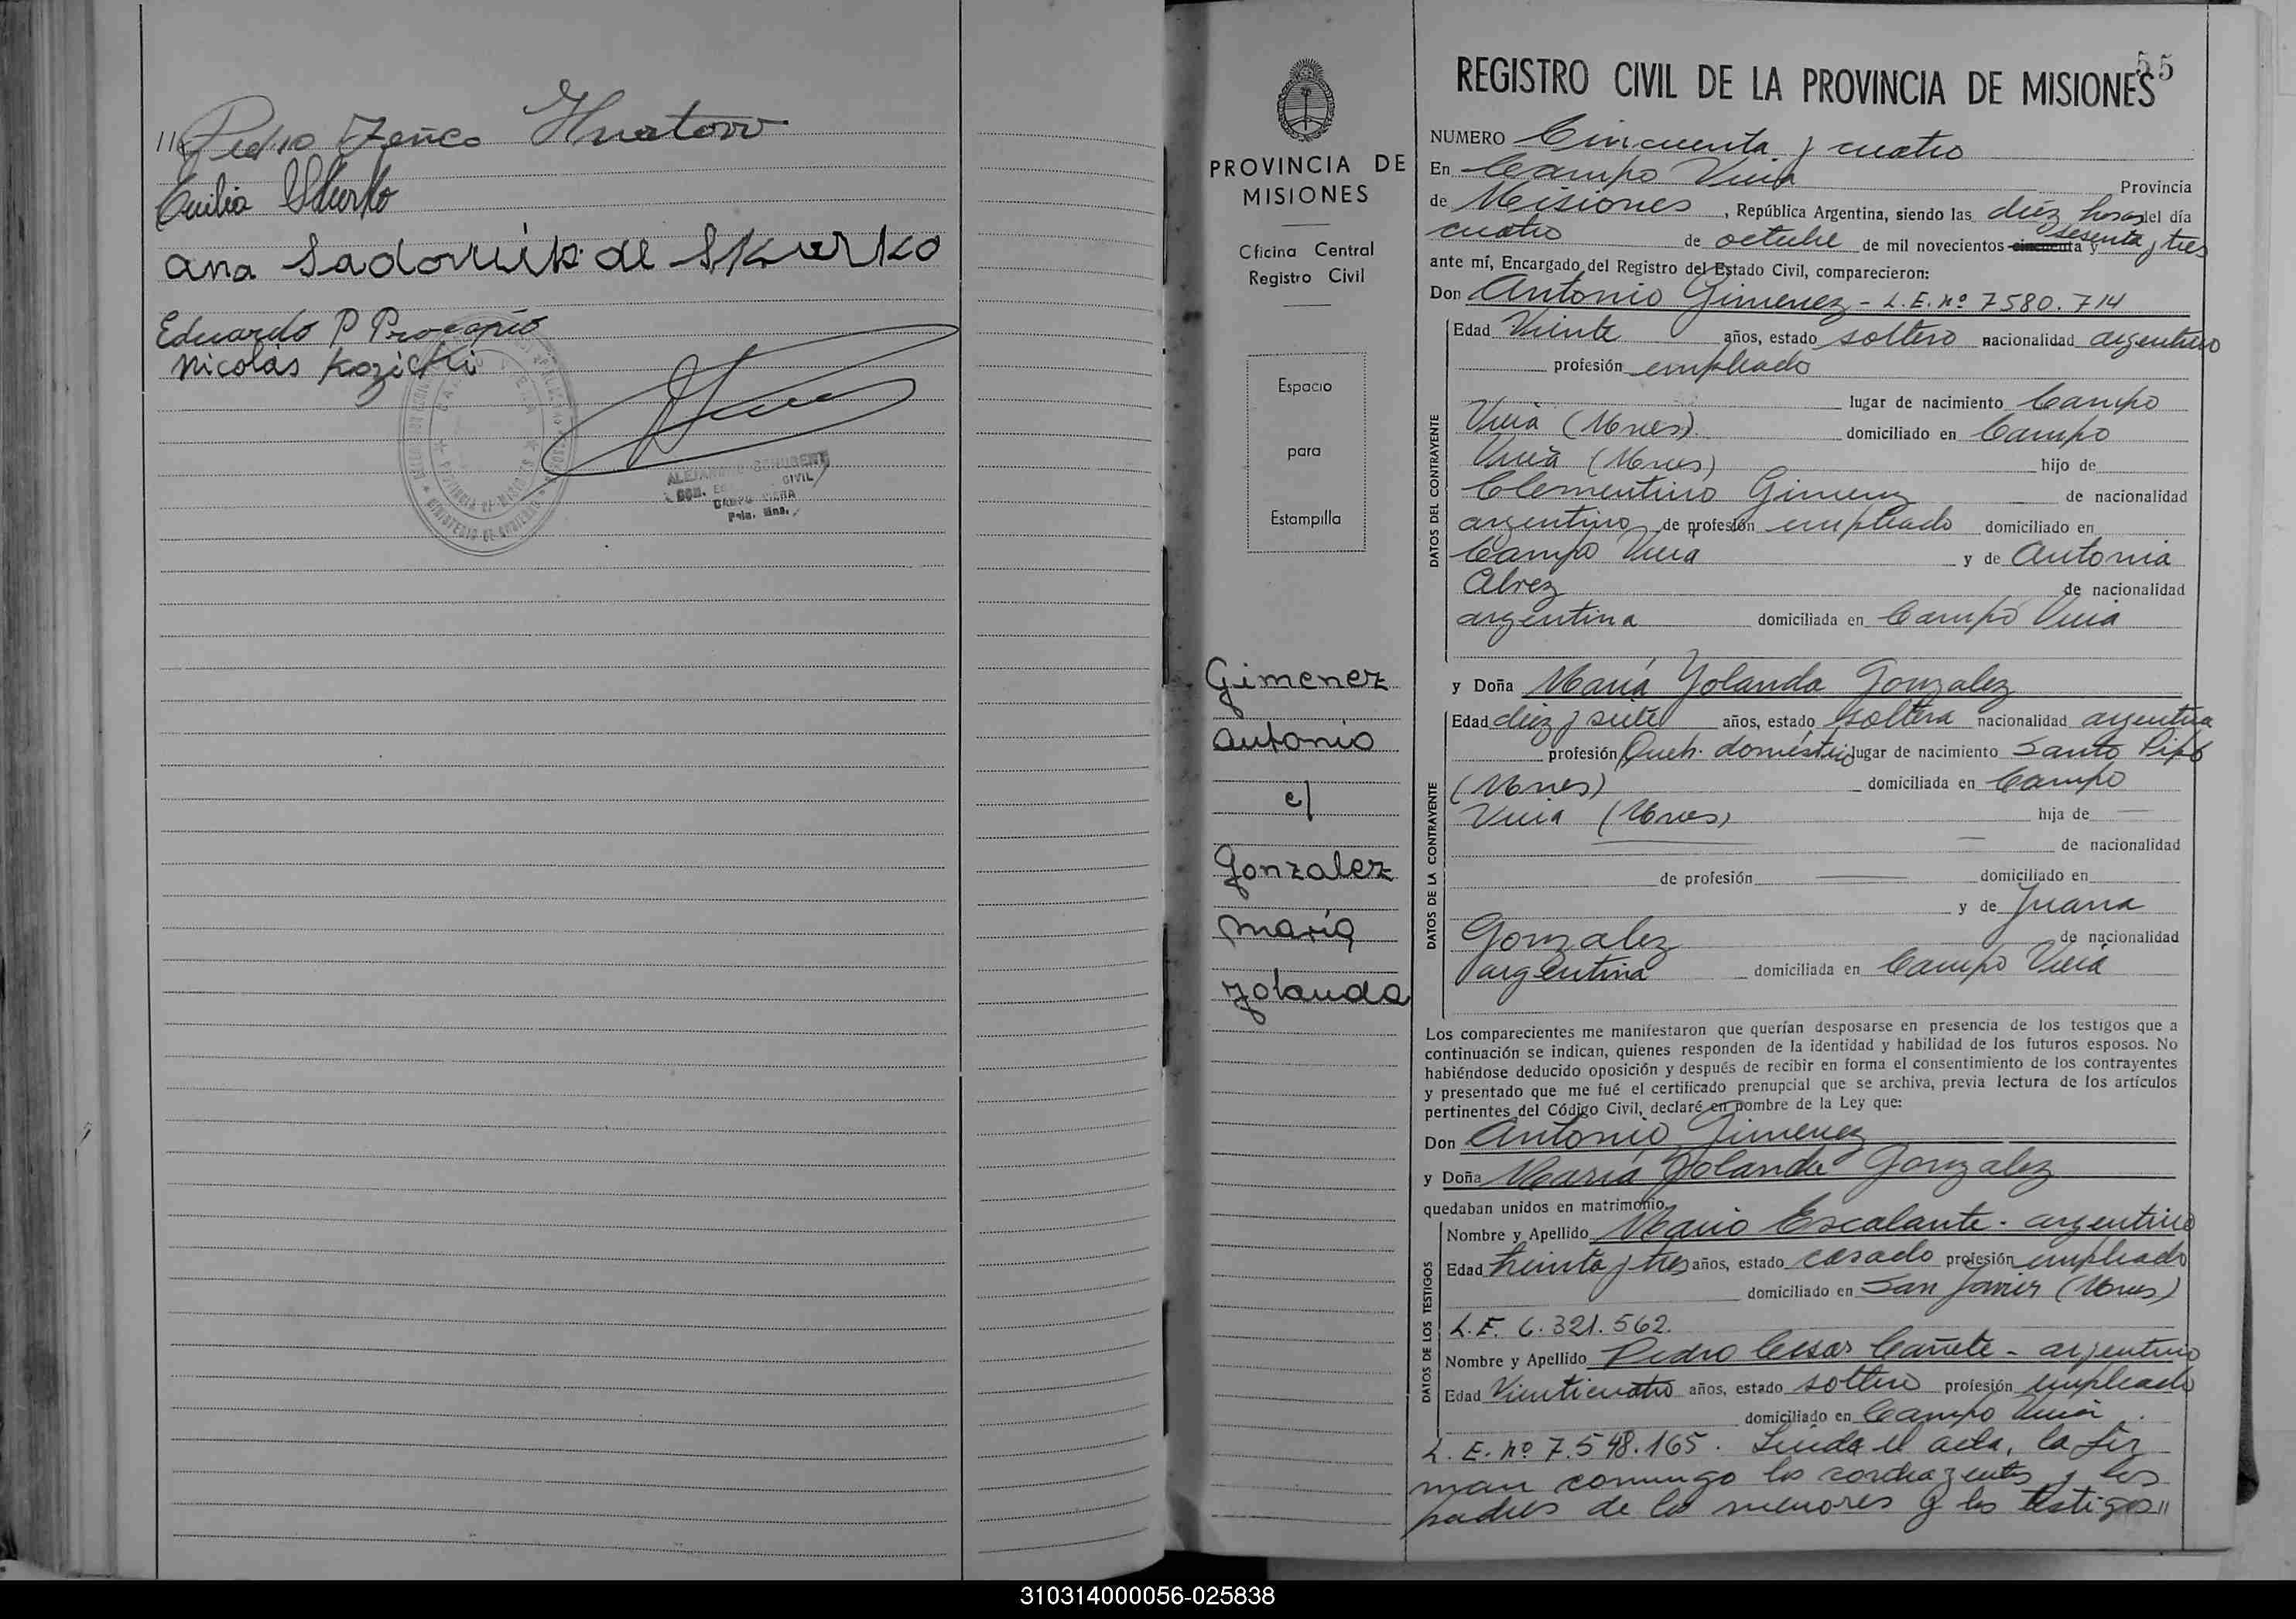 Pedro Zenco Hnatow
Emilia Skurko
Ana Sadovnik de Skurko
Eduardo P Procopio
Nicolás Kozicki
ALEJANDRO SCHUBERT
CIVIL
CAMPO VIERA
Pcia. Mns.
PROVINCIA DE
MISIONES
Oficina Central
Registro Civil
Espacio
para
Estampilla
Gimenez
Antonio
c/
Gonzalez
María
Yolanda
55
REGISTRO CIVIL DE LA PROVINCIA DE MISIONES
NUMERO Cincuenta y cuatro
En Campo Viera Provincia
de Misiones, República Argentina, siendo las diez horas del día
cuatro de octubre de mil novecientos cincuenta y sesenta y tres
ante mí, Encargado del Registro del Estado Civil, comparecieron:
Don Antonio Gimenez - L.E. nº 7580.714
DATOS DEL CONTRAYENTE
Edad Veinte años, estado soltero nacionalidad argentino
profesión empleado
lugar de nacimiento Campo
Viera (Mnes) domiciliado en Campo
Viera (Mnes) hijo de
Clementino Gimenez de nacionalidad
argentino de profesión empleado domiciliado en
Campo Viera y de Antonia
Alvez de nacionalidad
argentina domiciliada en Campo Viera
y Doña María Yolanda Gonzalez
DATOS DE LA CONTRAYENTE
Edad diez y siete años, estado soltera nacionalidad argentina
profesión Queh. domésticos lugar de nacimiento Santo Pipó
(Mnes) domiciliada en Campo
Viera (Mnes) hija de —
— de nacionalidad
de profesión — domiciliado en
y de Juana
Gonzalez de nacionalidad
argentina domiciliada en Campo Viera
Los comparecientes me manifestaron que querían desposarse en presencia de los testigos que a
continuación se indican, quienes responden de la identidad y habilidad de los futuros esposos. No
habiéndose deducido oposición y después de recibir en forma el consentimiento de los contrayentes
y presentado que me fué el certificado prenupcial que se archiva, previa lectura de los artículos
pertinentes del Código Civil, declaré en nombre de la Ley que:
Don Antonio Gimenez
y Doña María Yolanda Gonzalez
quedaban unidos en matrimonio.
DATOS DE LOS TESTIGOS
Nombre y Apellido Mario Escalante - argentino
Edad treinta y tres años, estado casado profesión empleado
domiciliado en San Javier (Mnes)
L.E. 6.321.562.
Nombre y Apellido Pedro Cesar Cañete - argentino
Edad Veinticuatro años, estado soltero profesión empleado
domiciliado en Campo Viera.
L.E. nº 7.548.165. Leida el acta, la fir
man conmigo los contrayentes y los
padres de los menores y los testigos //
310314000056-025838